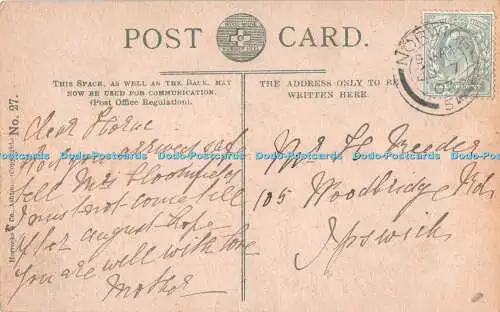 POST CARD.
THIS SPACE, AS WELL AS THE BACK, MAY
NOW BE USED FOR COMMUNICATION.
(Post Office Regulation).
THE ADDRESS ONLY TO BE
WRITTEN HERE.
No. 27.
Dear
safe
tell Mrs Bloomfield
I must not come till
after august hope
you are well with love
Mother
Mr H
105 Woodbridge Rd
Ipswich
Dodo-Postcards Dodo-Postcards Dodo-Postcards Dodo-Postcards Dodo-Postcards